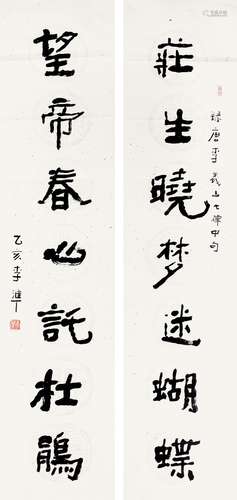 莊生曉梦迷蝴蝶
錄唐李義山七律中句
望帝春心託杜鵑
乙亥李